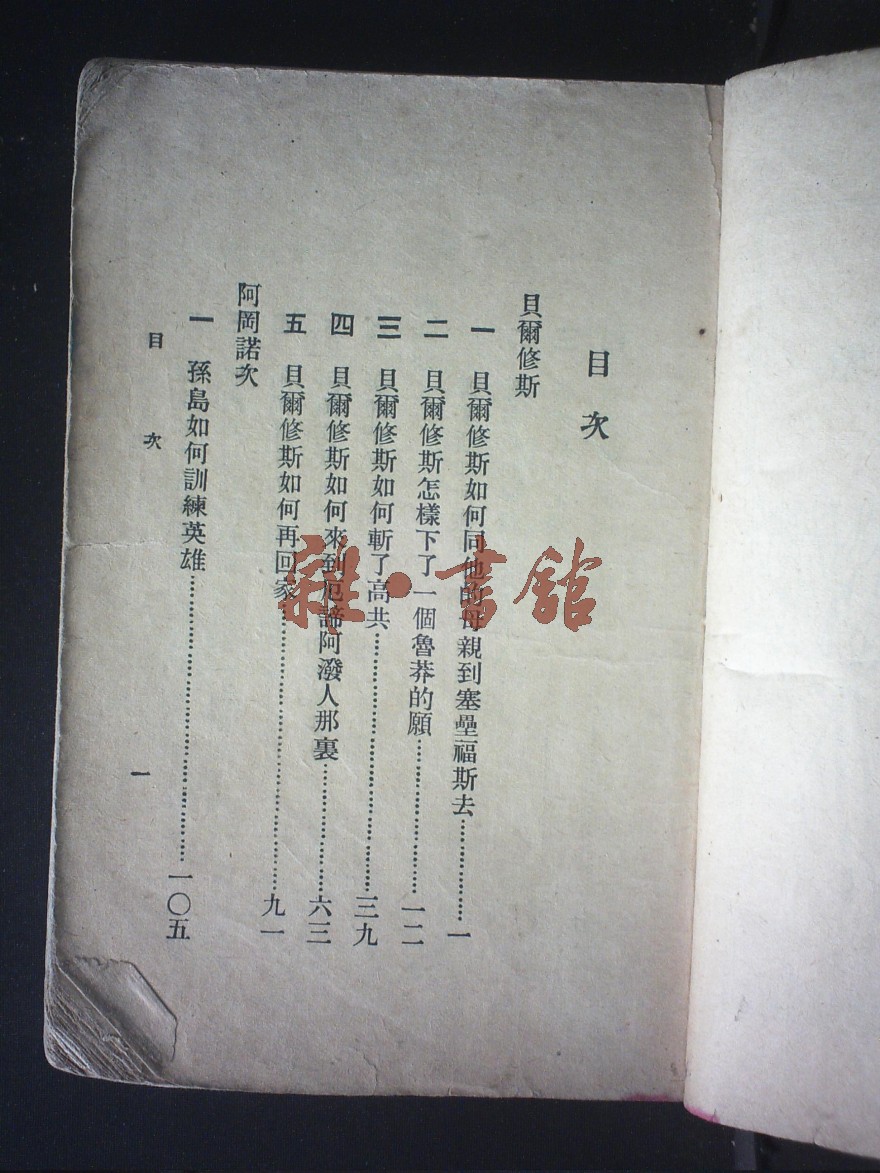 目次
貝爾修斯
一 貝爾修斯如何同他的母親到塞壘福斯去………………一
二 貝爾修斯怎樣下了一個魯莽的願………………一二
三 貝爾修斯如何斬了高共………………三九
四 貝爾修斯如何來到厄諦阿潑人那裏………………六三
五 貝爾修斯如何再回家………………九一
阿岡諾次
一 孫島如何訓練英雄………………一〇五
目次
一
雜·書館